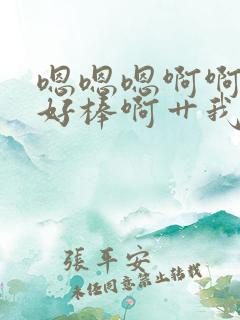 嗯嗯嗯啊啊
好棒啊艹我
張平安
未经同意禁止转载